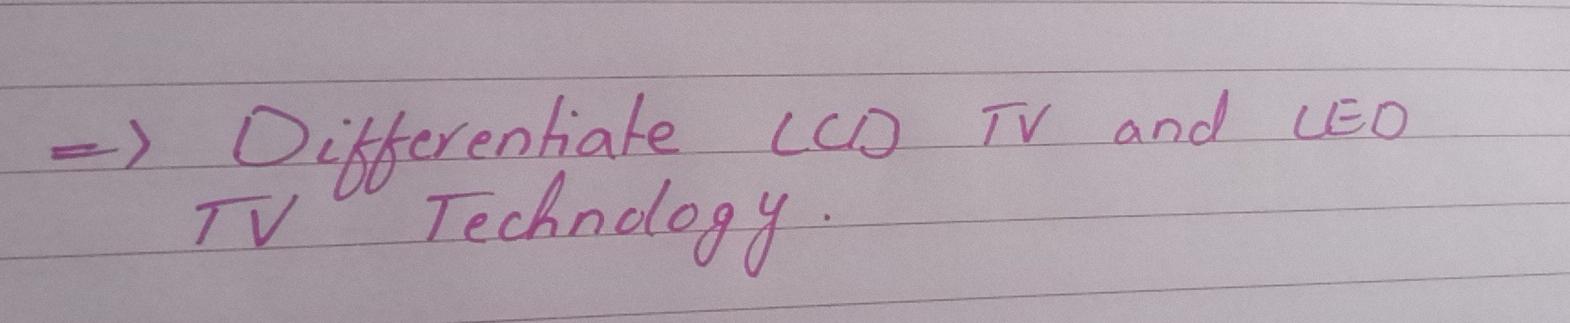 => Differentiate LCD TV and LED
TV Technology.